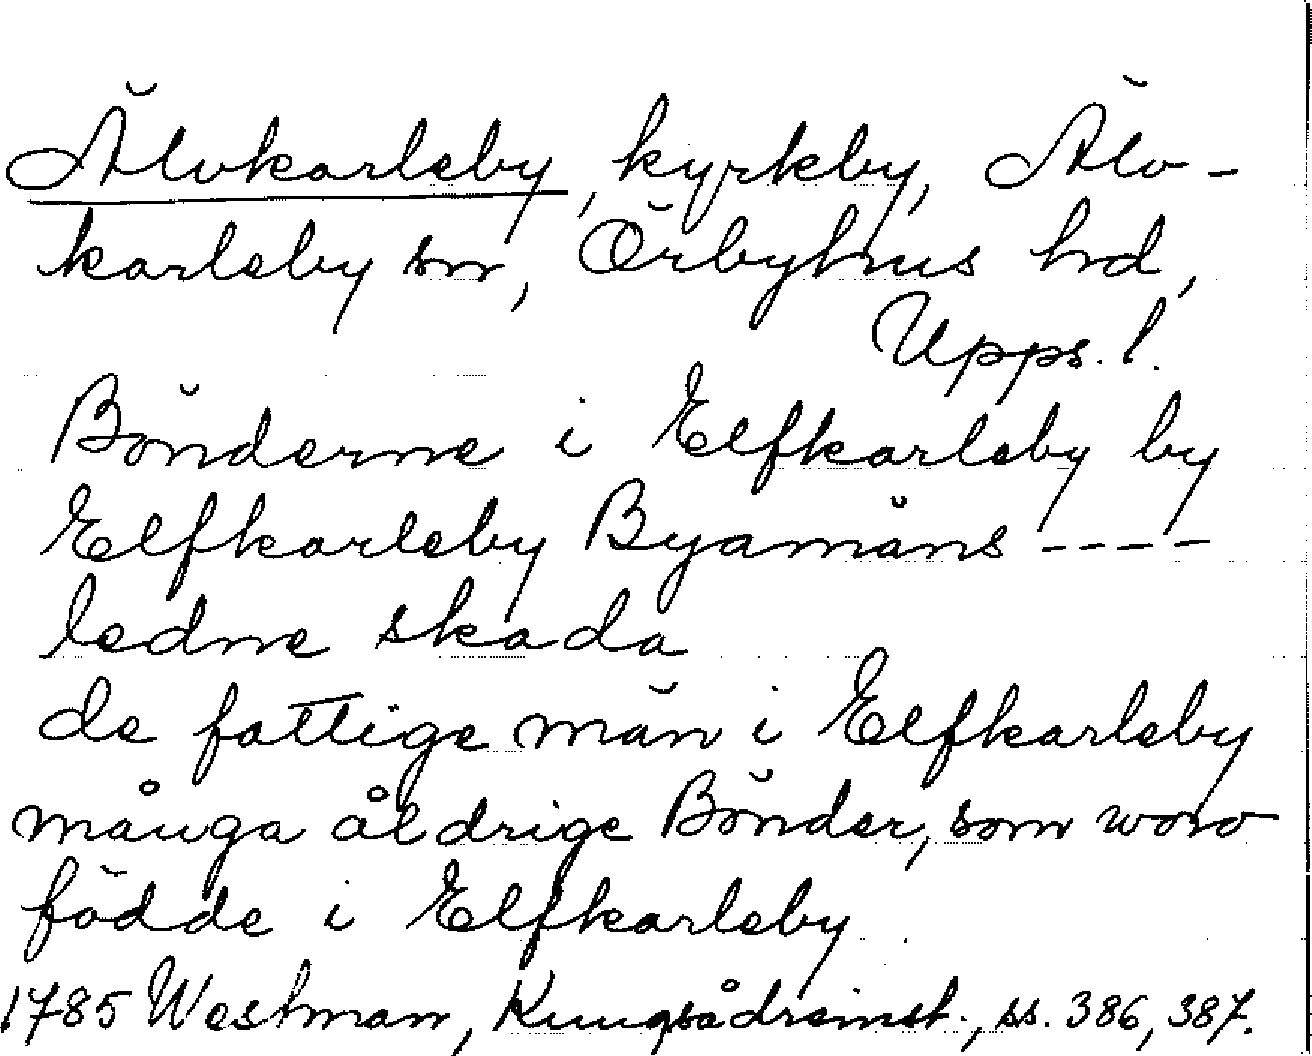 Älvkarleby, kyrkby, Älv-
karleby sn, Örbyhus hd,
Upps. l.
Bönderne i Elfkarleby by
Elfkarleby Byamäns ----
ledne skada
de fattige män i Elfkarleby
många åldrige Bönder, som woro
födde i Elfkarleby
1785 Westman, Kungsådreinst., ss. 386, 387.